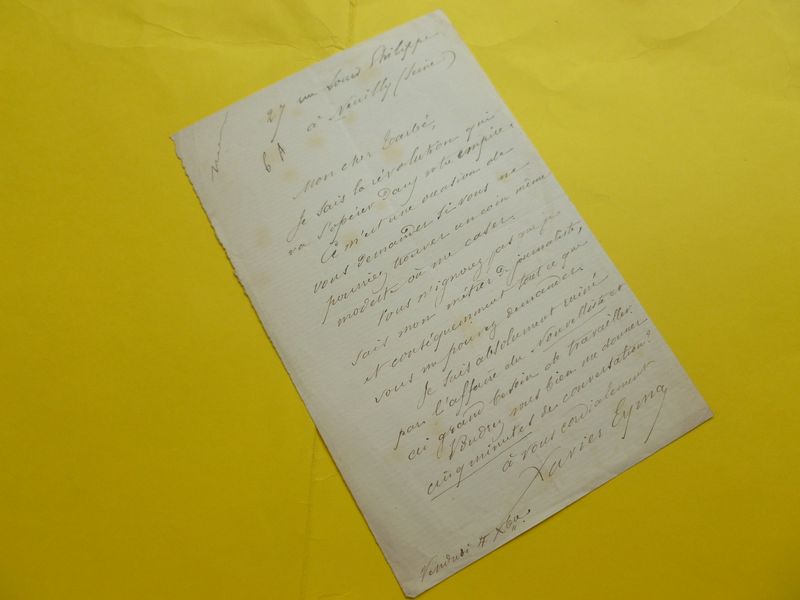 27 rue Louis Philippe
à Neuilly (Seine)
Mon cher Tarbé,
Je sais la révolution qui
va s'opérer dans votre empire.
Ce m'est une occasion de
vous demander si vous ne
pourriez trouver un coin même
modeste où me caser.
Vous n'ignorez pas que je
sais mon métier de journaliste,
et conséquemment tout ce que
vous me pouvez demander.
Je suis absolument ruiné
par l'affaire du Nouvelliste et
ai grand besoin de travailler.
Voudrez vous bien me donner
cinq minutes de conversation?
à vous cordialement
Xavier Eyma
Vendredi 7 Xbre